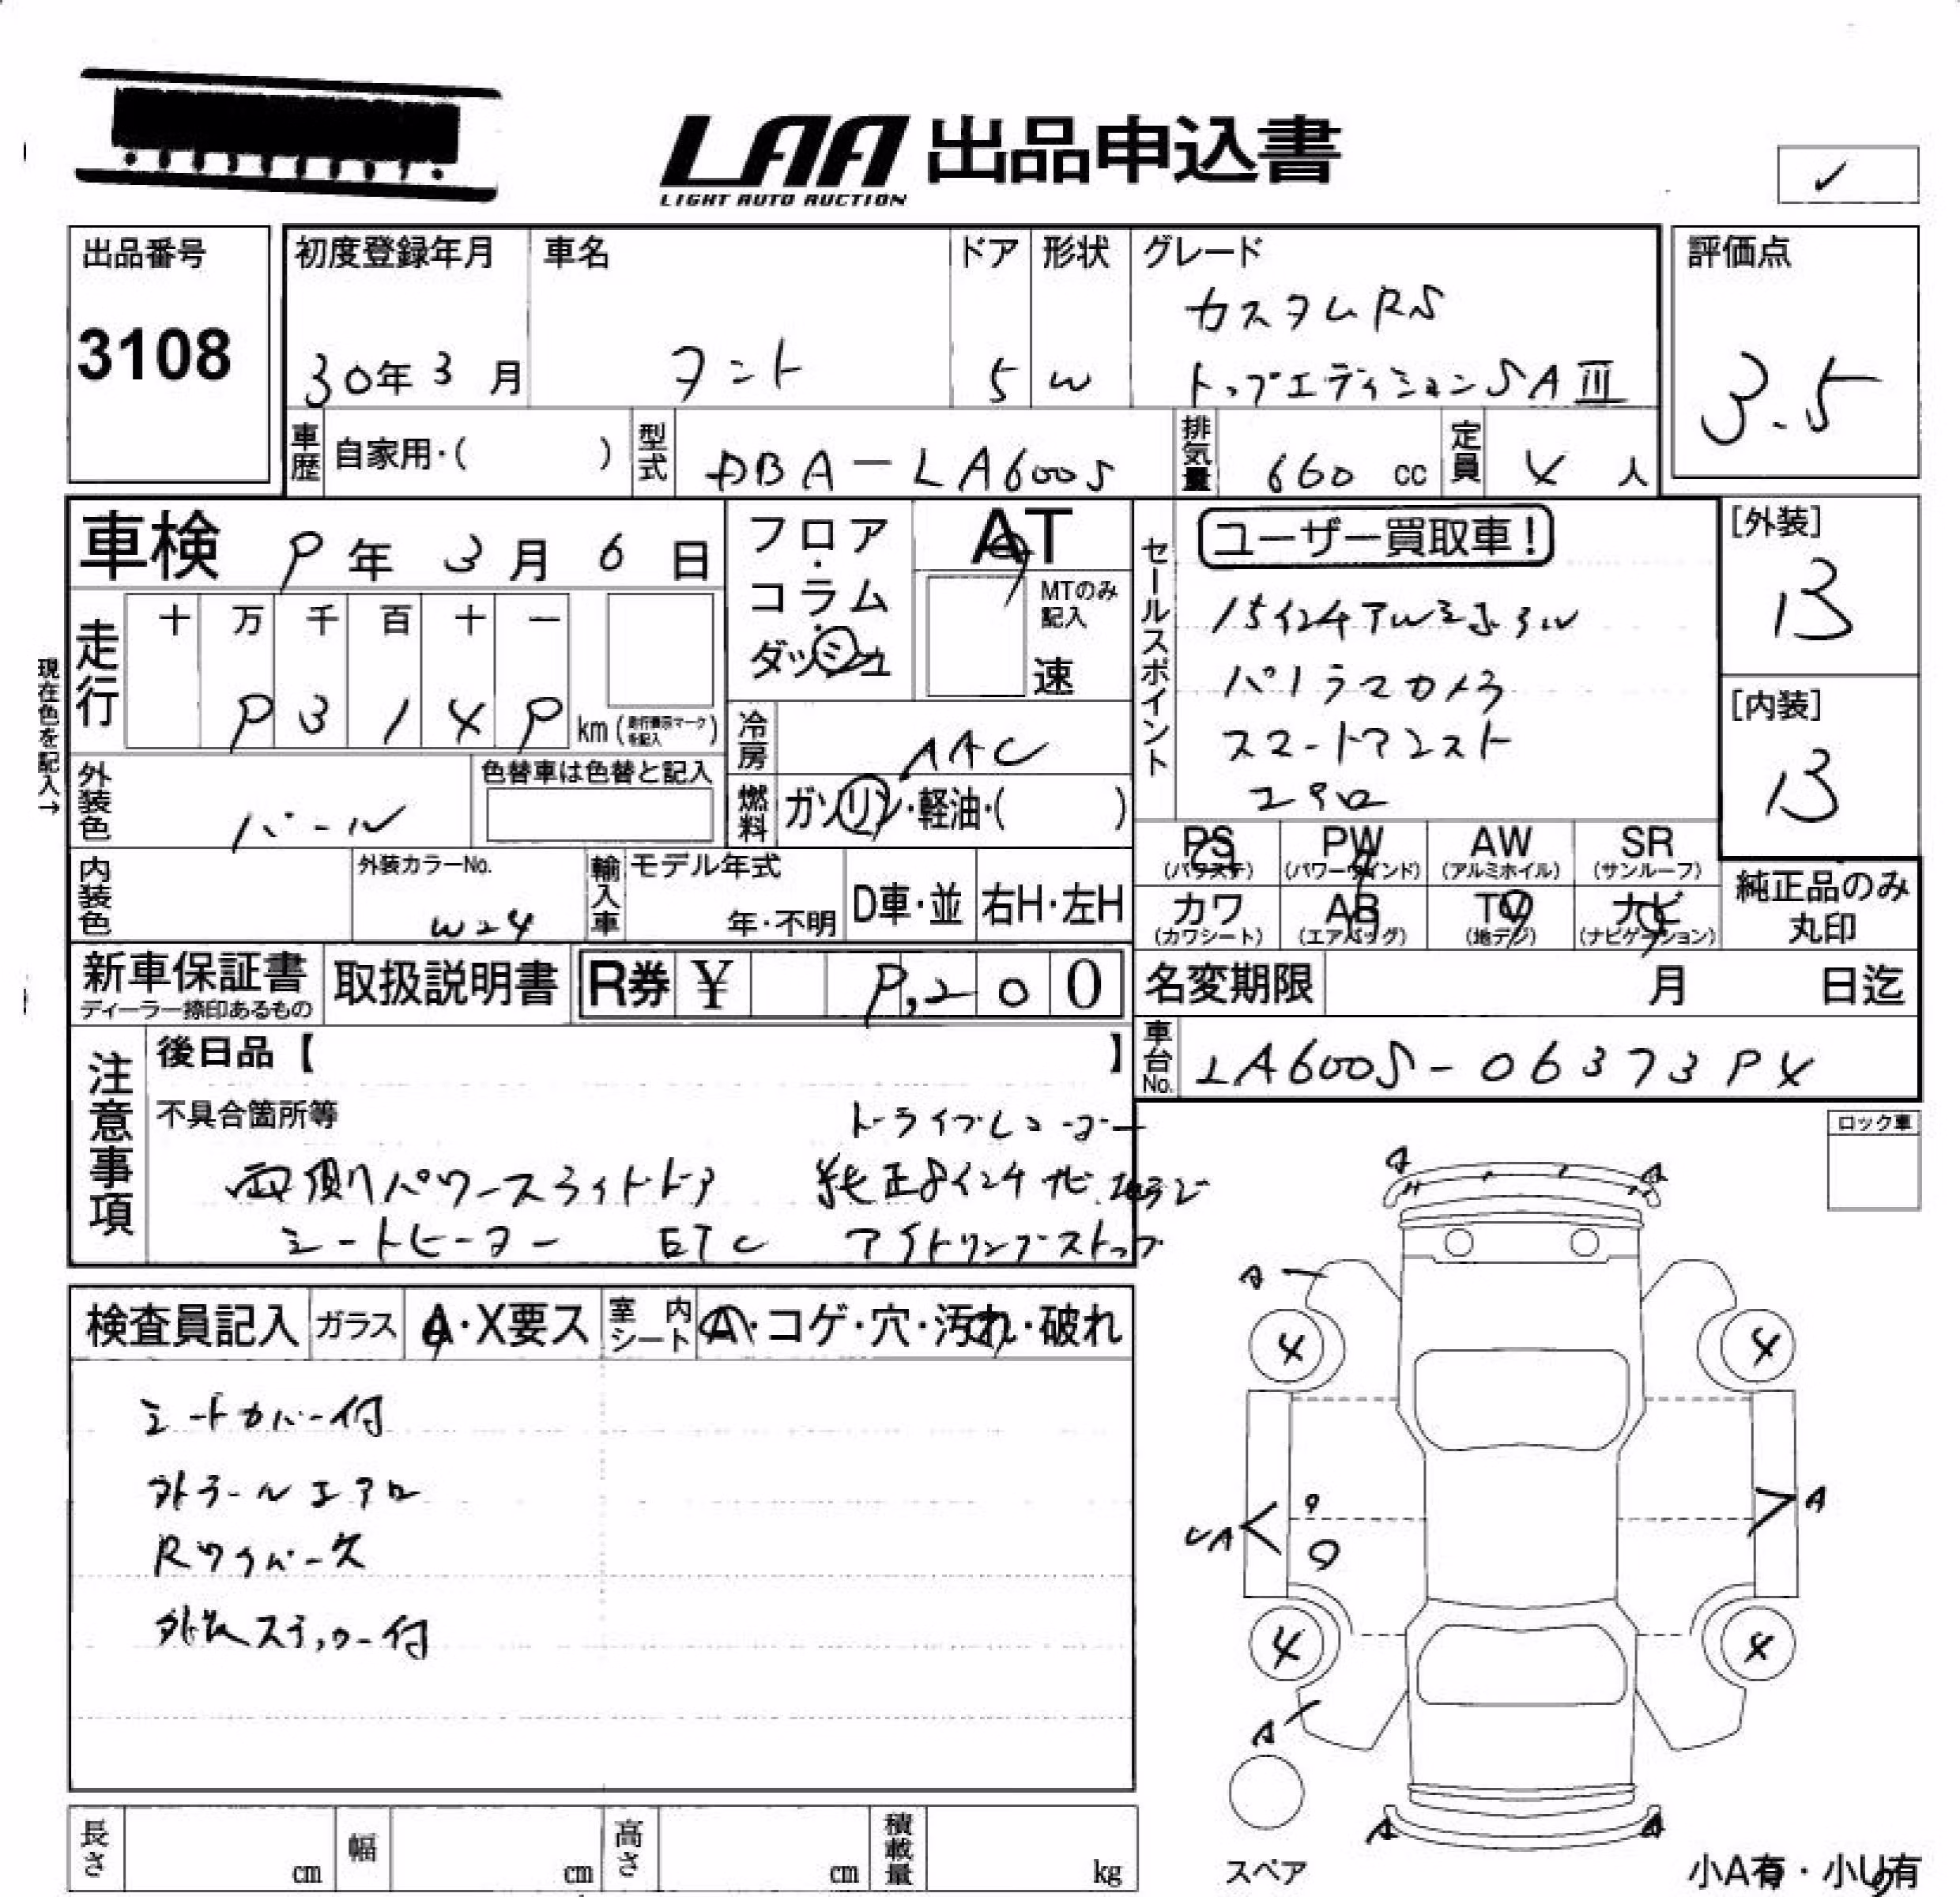 LAA 出品申込書
LIGHT AUTO AUCTION
✓
出品番号
3108
初度登録年月
30年3月
車名
タント
ドア
5
形状
W
グレード
カスタムRS
トップエディションSAⅢ
評価点
3.5
車歴 自家用・( )
型式 DBA-LA600S
排気量 660 cc
定員 4 人
車検 9年 3月 6日
フロア・コラム・ダッシュ
AT
MTのみ記入
速
セールスポイント
ユーザー買取車!
15インチアルミホイル
パノラマカメラ
スマートアシスト
エアロ
[外装]
B
[内装]
B
現在色を記入→
走行
十 万 千 百 十 一
9 3 1 4 9 km (走行表示マークを記入)
冷房 AAC
外装色 パール
色替車は色替と記入
燃料 ガソリン・軽油・( )
PS (パワステ) PW (パワーウインド) AW (アルミホイル) SR (サンルーフ)
カワ (カワシート) AB (エアバッグ) TV (地デジ) ナビ (ナビゲーション)
純正品のみ丸印
内装色
外装カラーNo.
W24
輸入車
モデル年式
年・不明
D車・並
右H・左H
新車保証書
ディーラー捺印あるもの
取扱説明書
R券 ¥ 9,200
名変期限 月 日迄
車台No. LA600S-0637394
注意事項
後日品【 】
不具合箇所等
ドライブレコーダー
両側パワースライドドア 純正8インチナビ 地デジ
シートヒーター ETC アイドリングストップ
ロック車
検査員記入
ガラス A・X要ス
室内シート A・コゲ・穴・汚れ・破れ
シートカバー付
外ラールエアロ
Rワイパー欠
外装ステッカー付
A A
A
4 4
UA A
4 4
A
A A
スペア
小A有・小U有
長さ cm
幅 cm
高さ cm
積載量 kg